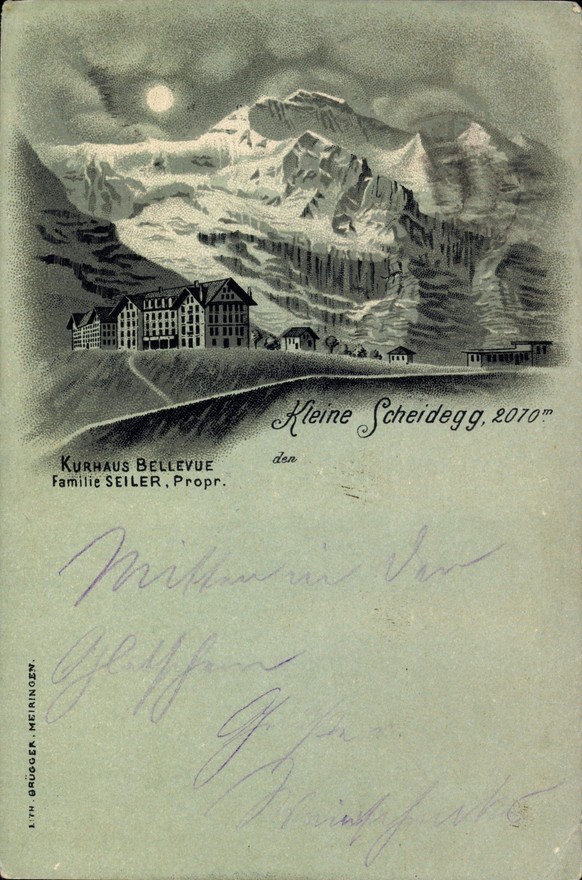 Kleine Scheidegg, 2070 m.
den
KURHAUS BELLEVUE
Familie SEILER, Propr.
Mitten in der
Gletschern
LITH. BRÜGGER, MEIRINGEN.